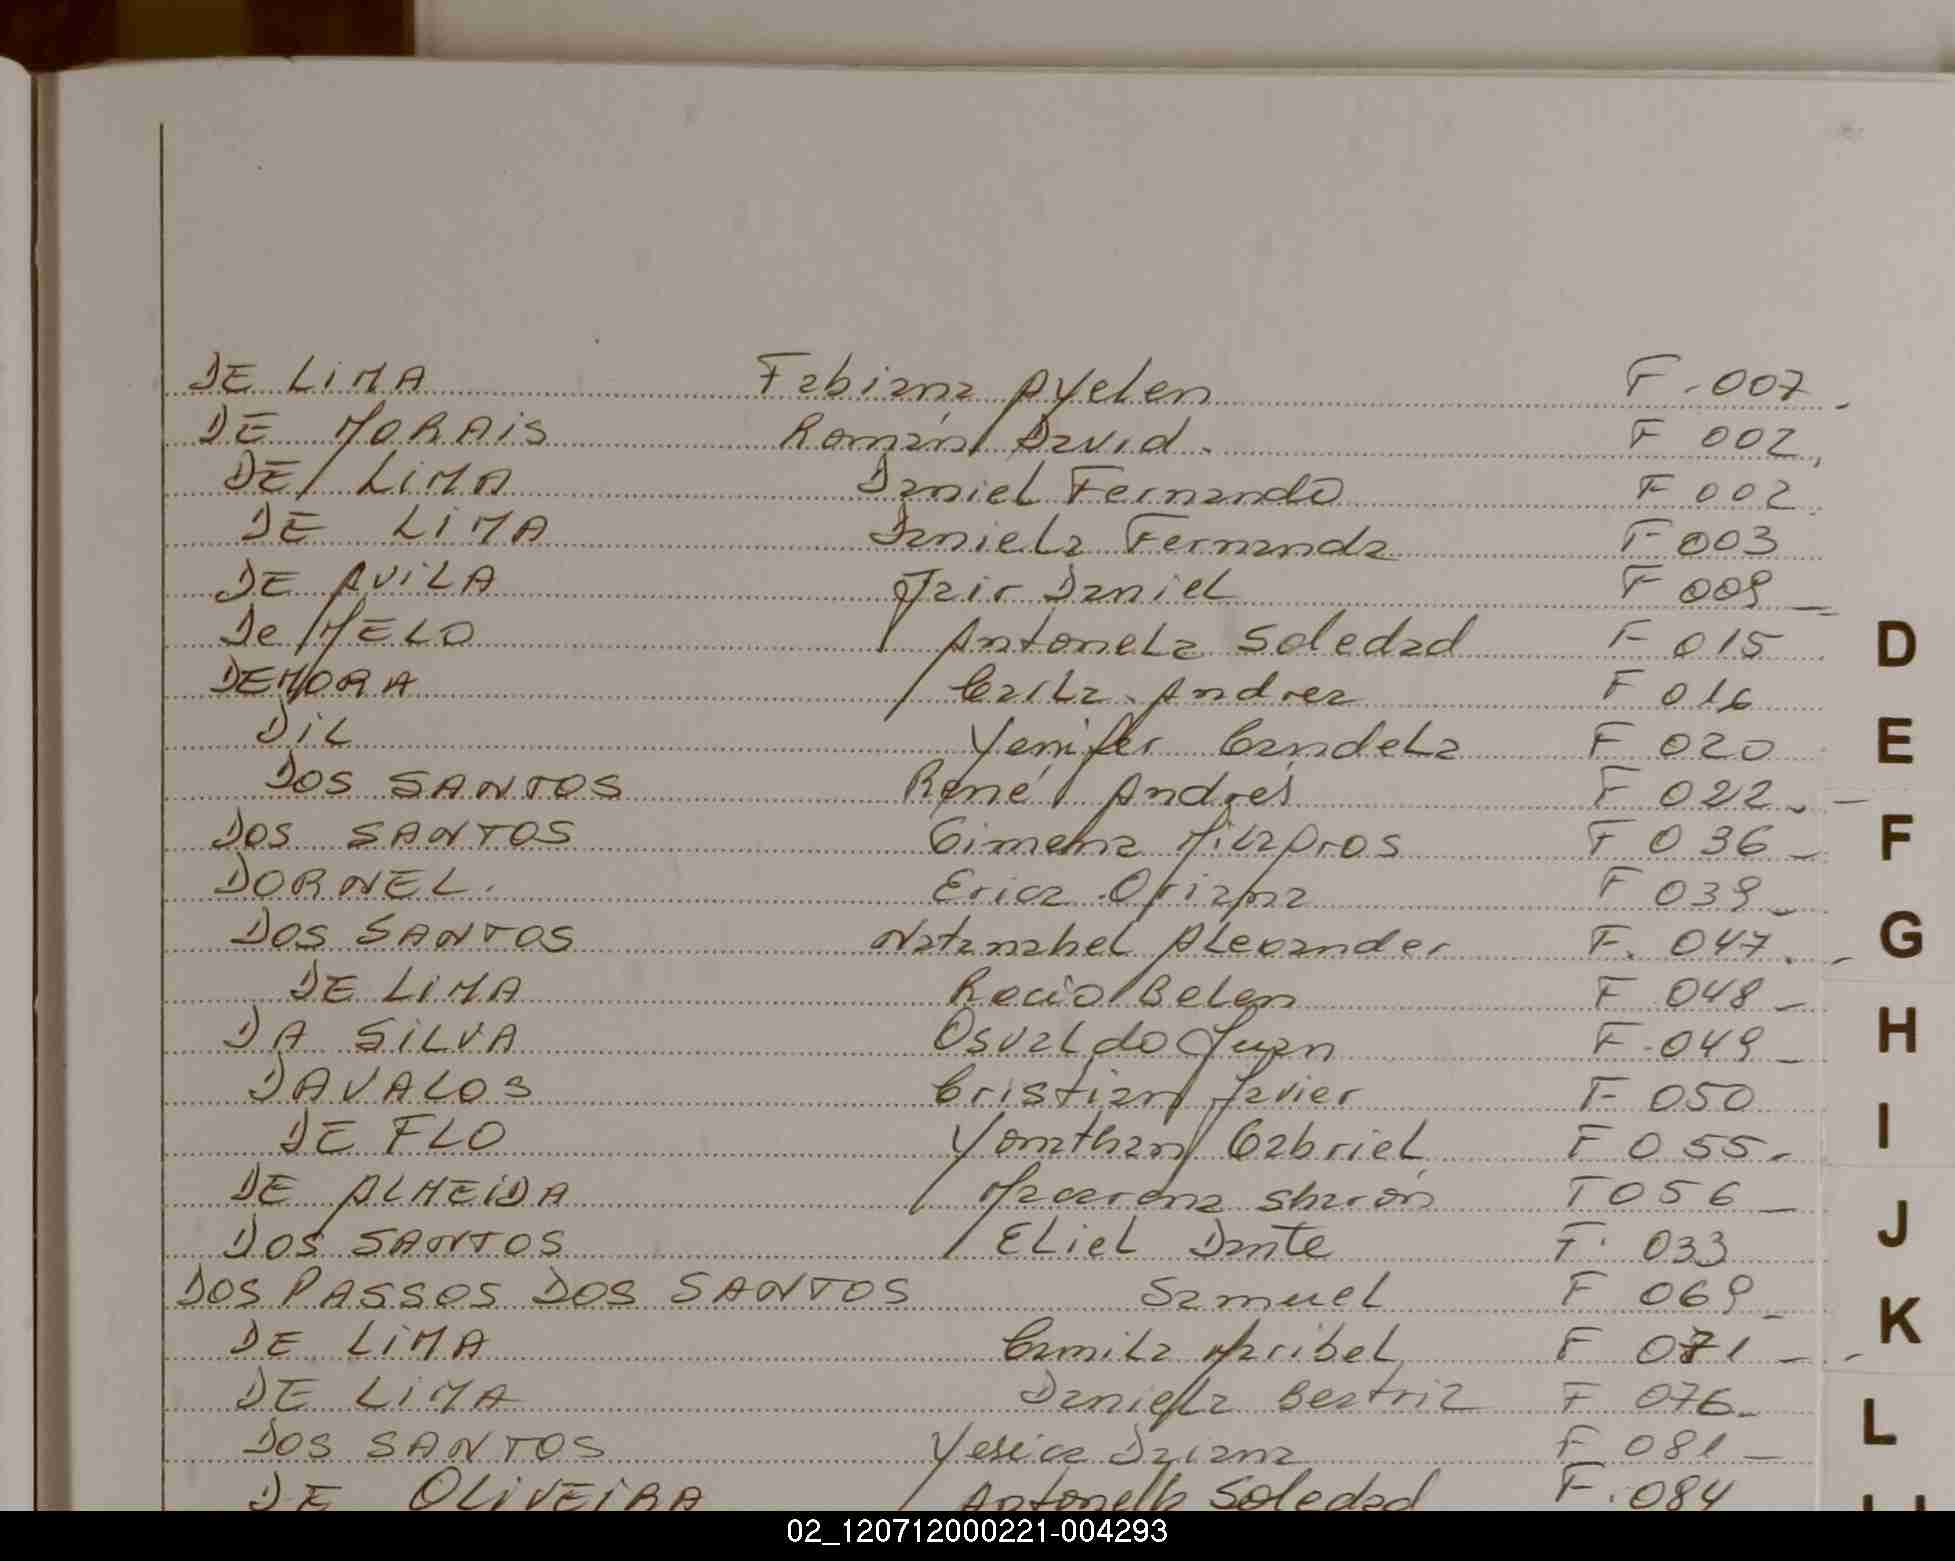 DE LIMA Fabiana Ayelen F. 007.
DE MORAIS Román David. F 002,
DE LIMA Daniel Fernando F 002.
DE LIMA Daniela Fernanda F 003
DE AVILA Jair Daniel F 009_
De MELO Antonela Soledad F 015
DEMORA Carla Andrea F 016
DIL Yenifer Candela F 020
DOS SANTOS René Andrés F 022. -
DOS SANTOS Gimena Milagros F 036_
DORNEL. Erica Oriana F 039_
DOS SANTOS Natanahel Alexander F. 047. -
DE LIMA Rocio Belen F 048_
DA SILVA Osvaldo Juan F. 049_
DAVALOS Cristian Javier F 050
DE FLO Yonathan Gabriel F 055.
DE ALMEIDA Macarena Sharón F 056_
DOS SANTOS Eliel Dante F. 033
DOS PASSOS DOS SANTOS Samuel F 069_
DE LIMA Camila Maribel F 071_
DE LIMA Daniela Beatriz F 076_
DOS SANTOS Yesica Daiana F 081_
DE OLIVEIRA Antonella Soledad F. 084
D
E
F
G
H
I
J
K
L
02_120712000221-004293